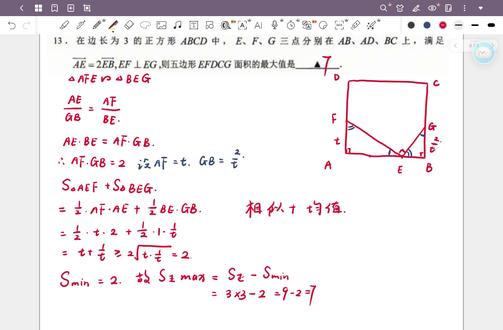 13. 在边长为 3 的正方形 ABCD 中, E、F、G 三点分别在 AB、AD、BC 上, 满足
AE=2EB, EF⊥EG, 则五边形 EFDCG 面积的最大值是 ▲ 7
△AFE∽△BEG
AE/GB = AF/BE.
AE·BE = AF·GB.
∴ AF·GB=2 设 AF=t. GB=2/t.
S△AEF + S△BEG.
= 1/2·AF·AE + 1/2 BE·GB.
= 1/2·t·2 + 1/2·1·2/t
= t+1/t ≥ 2√(t·1/t) = 2.
相似+均值.
Smin = 2. 故 S五max = S正 - Smin
= 3×3-2 =9-2=7
D
C
F
G
t
A
E
B